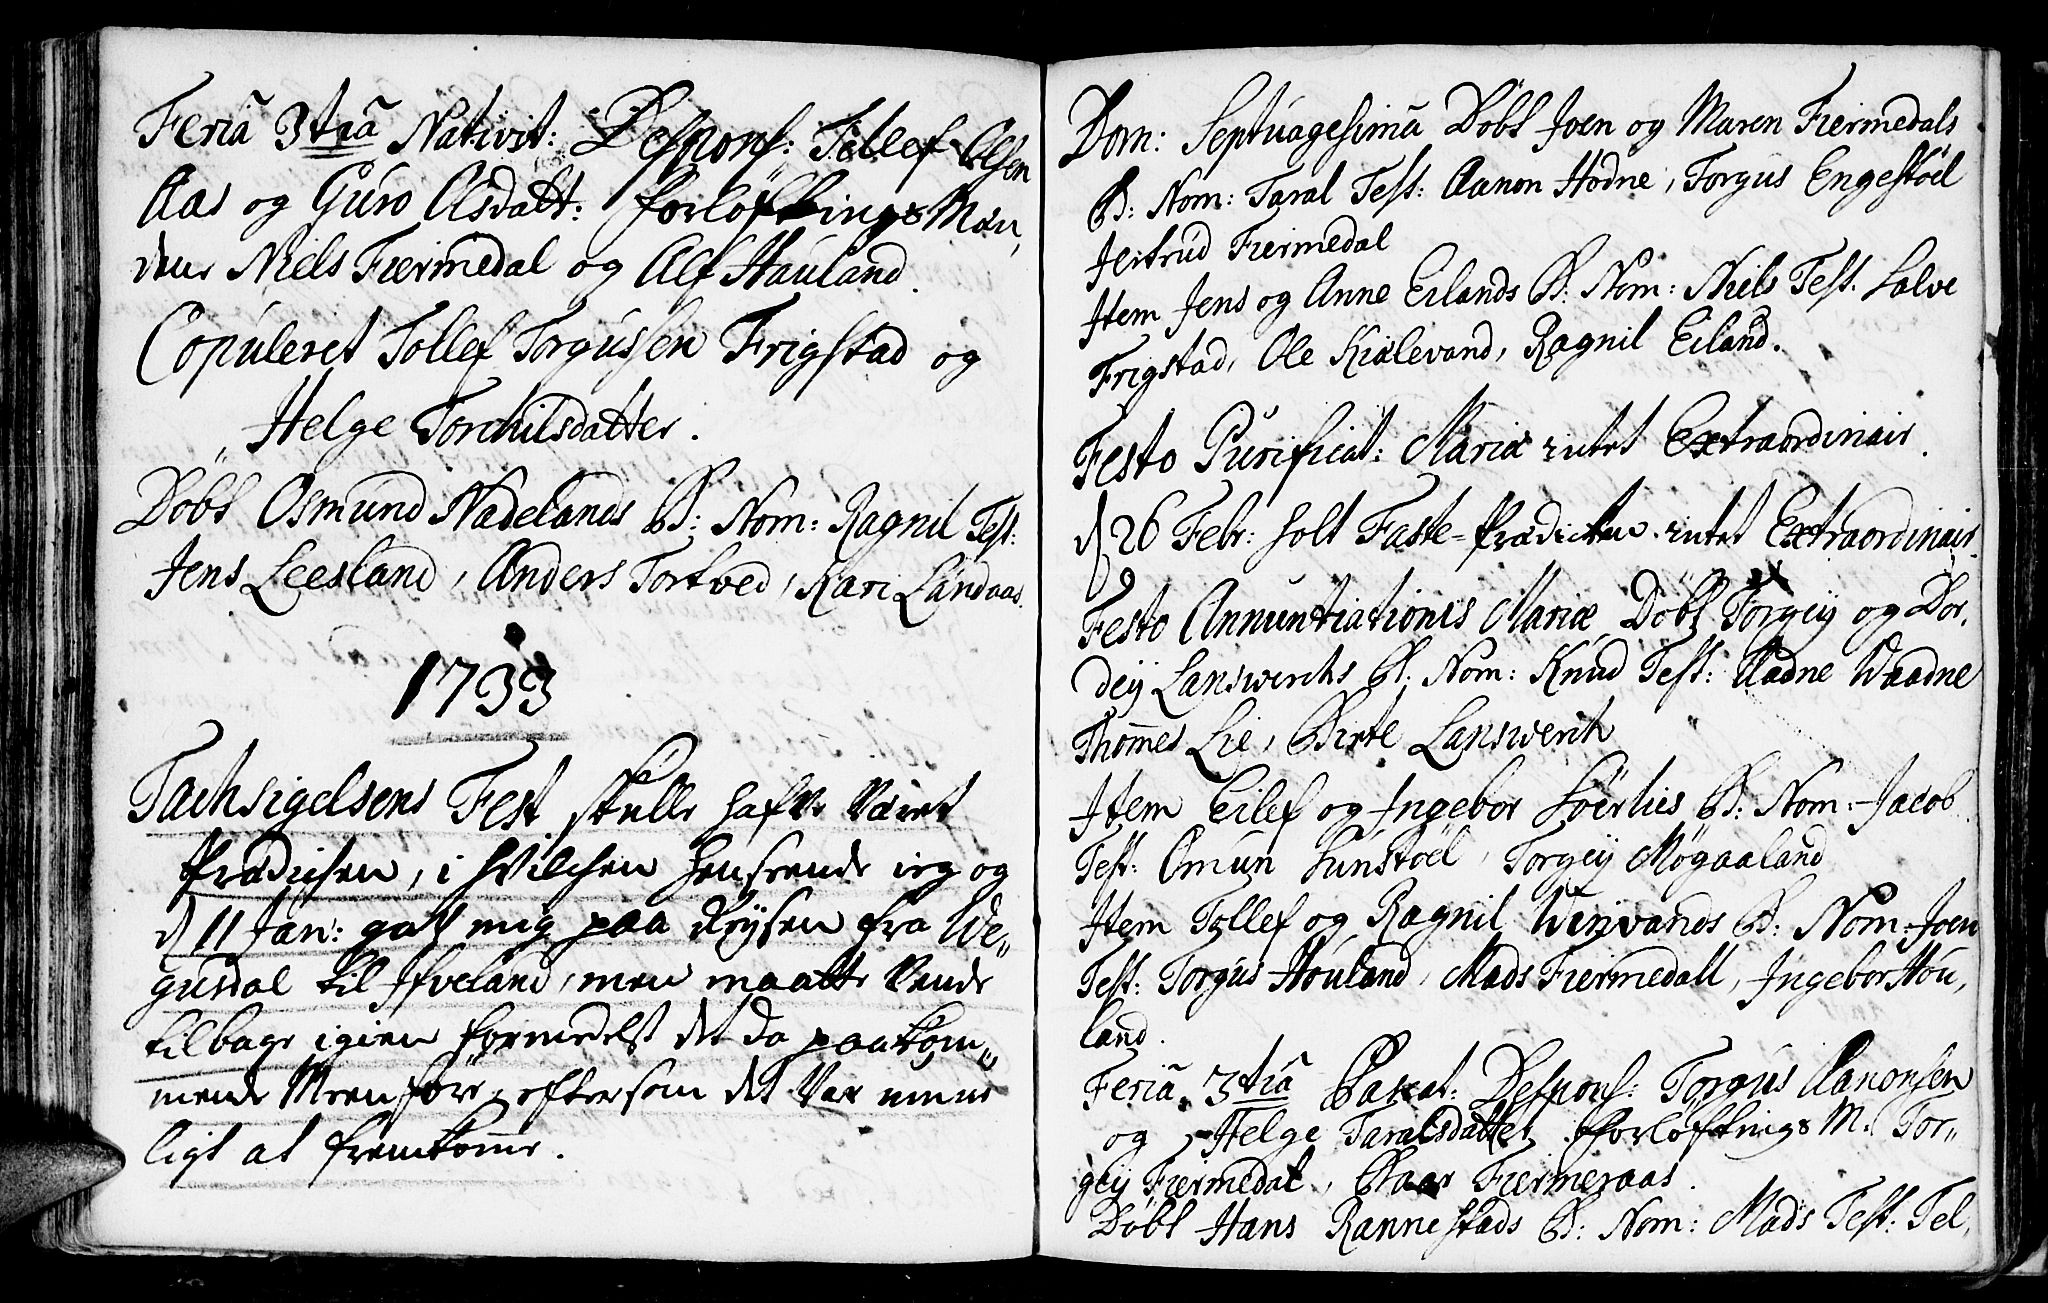 Feriâ 3tiâ Nativit: Despons: Tellef Olsen
Aas og Guro Olsdatt: Forløftnings Mæn,
dene Niels Fiermedal og Alf Hauland.
Copuleret Tollef Torgussen Frigstad og
Helge Torchilsdatter.
Döbt Osmund Nadelands B: Nom: Ragnil Test:
Jens Leesland, Anders Tortved, Kari Landaas.
1733
Tachsigelsens Fest skulle hafve været
Prædichen, i hvilchen henseende ieg og
d 11 Jan: gaf mig paa Reysen fra We„
gusdal til Ifveland, men maatte vende
tilbage igien formedelst det da paakom„
mende Meenföre, eftersom det var umu
ligt at fremkom̃e.
Dom: Septuagesimâ Döbt Joen og Maren Fiermedals
B: Nom: Taral Test: Aanon Hodne, Torgus Engestöel
Jertrud Fiermedal
Item Jens og Anne Eilands B: Nom: Niels Test. Salve
Frigstad, Ole Kialevand, Ragnil Eiland.
Festo Purificat: Mariæ intet Extraordinair.
d 26 Febr: holt Faste-Prædicken intet Extraordinair.
Festo Annuntiationis Mariæ Döbt Torgeij og Dor,
deij Lanswerchs B: Nom: Knud Test: Aadne Waadne
Thom̃es Lie, Birte Lanswerch
Item Eilef og Ingebor Löerlies B: Nom: Jacob
Test: Omun Sunstöel, Torgeij Mögaaland
Item Tollef og Ragnil Wejvands B: Nom: Joen
Test: Torgus Houland, Mads Fiermedall, Ingebor Hou,
land.
Feriâ 3tiâ Paschat: Despons: Torgus Aanonsen
og Helge Taralsdatter Forløftnings M. Tor„
geij Fiermedal, Fiermeraas.
Döbt Hans Rannestads B: Nom: Mads Test: Tel,